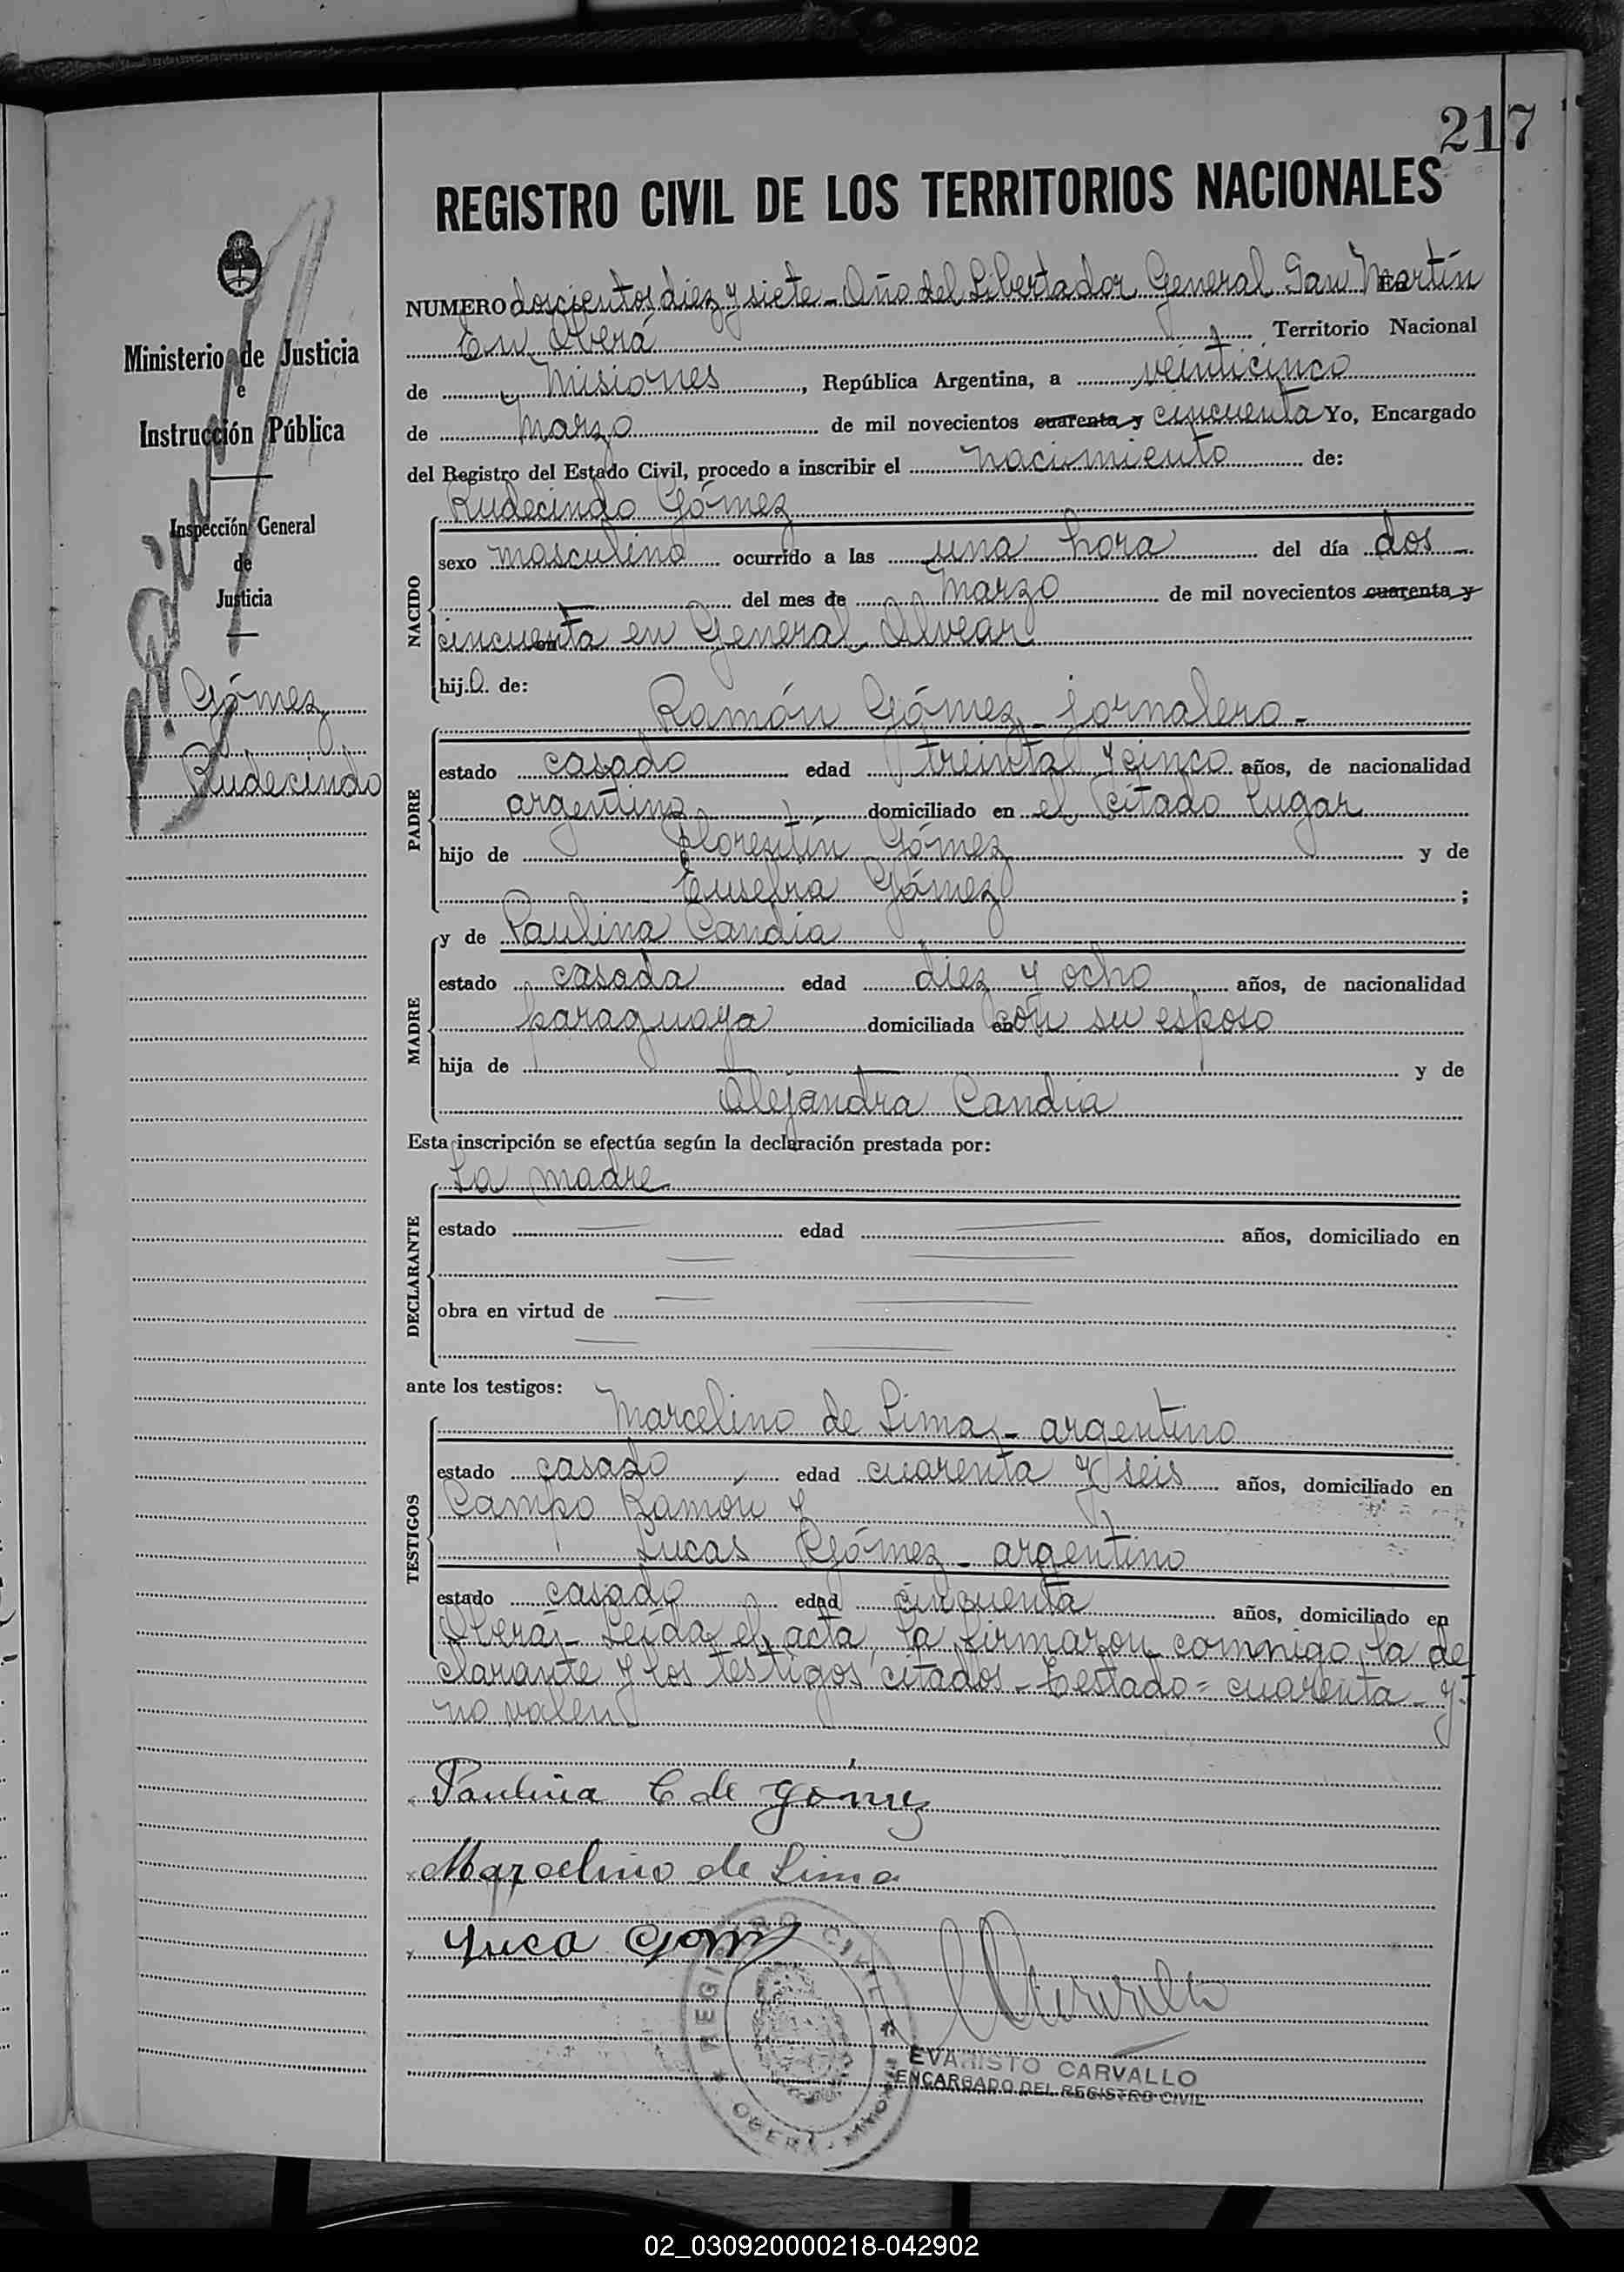 217
REGISTRO CIVIL DE LOS TERRITORIOS NACIONALES
Ministerio de Justicia
e
Instrucción Pública
Inspección General
de
Justicia
Gómez
Rudecindo
NUMERO doscientos diez y siete - Año del Libertador General San Martín
En Oberá Territorio Nacional
de Misiones, República Argentina, a veinticinco
de Marzo de mil novecientos cuarenta y cincuenta Yo, Encargado
del Registro del Estado Civil, procedo a inscribir el nacimiento de:
NACIDO
Rudecindo Gómez
sexo masculino ocurrido a las una hora del día dos
del mes de Marzo de mil novecientos cuarenta y
cincuenta en General Alvear
hijo de:
PADRE
Ramón Gómez - jornalero -
estado casado edad treinta y cinco años, de nacionalidad
argentino domiciliado en el citado lugar
hijo de Florentín Gómez y de
Eusebia Gómez ;
MADRE
y de Paulina Candia
estado casada edad diez y ocho años, de nacionalidad
paraguaya domiciliada en con su esposo
hija de y de
Alejandra Candia
Esta inscripción se efectúa según la declaración prestada por:
DECLARANTE
La madre
estado edad años, domiciliado en
obra en virtud de
ante los testigos:
TESTIGOS
Marcelino de Lima - argentino
estado casado edad cuarenta y seis años, domiciliado en
Campo Ramón y
Lucas Gómez - argentino
estado casado edad cincuenta años, domiciliado en
Oberá - Leída el acta, la firmaron conmigo la de
clarante y los testigos citados - Testado = cuarenta - y -
no valen
Paulina C de Gómez
Marcelino de Lima
Luca Gom
REGISTRO CIVIL
OBERA - MISIONES
EVARISTO CARVALLO
ENCARGADO DEL REGISTRO CIVIL
02_030920000218-042902